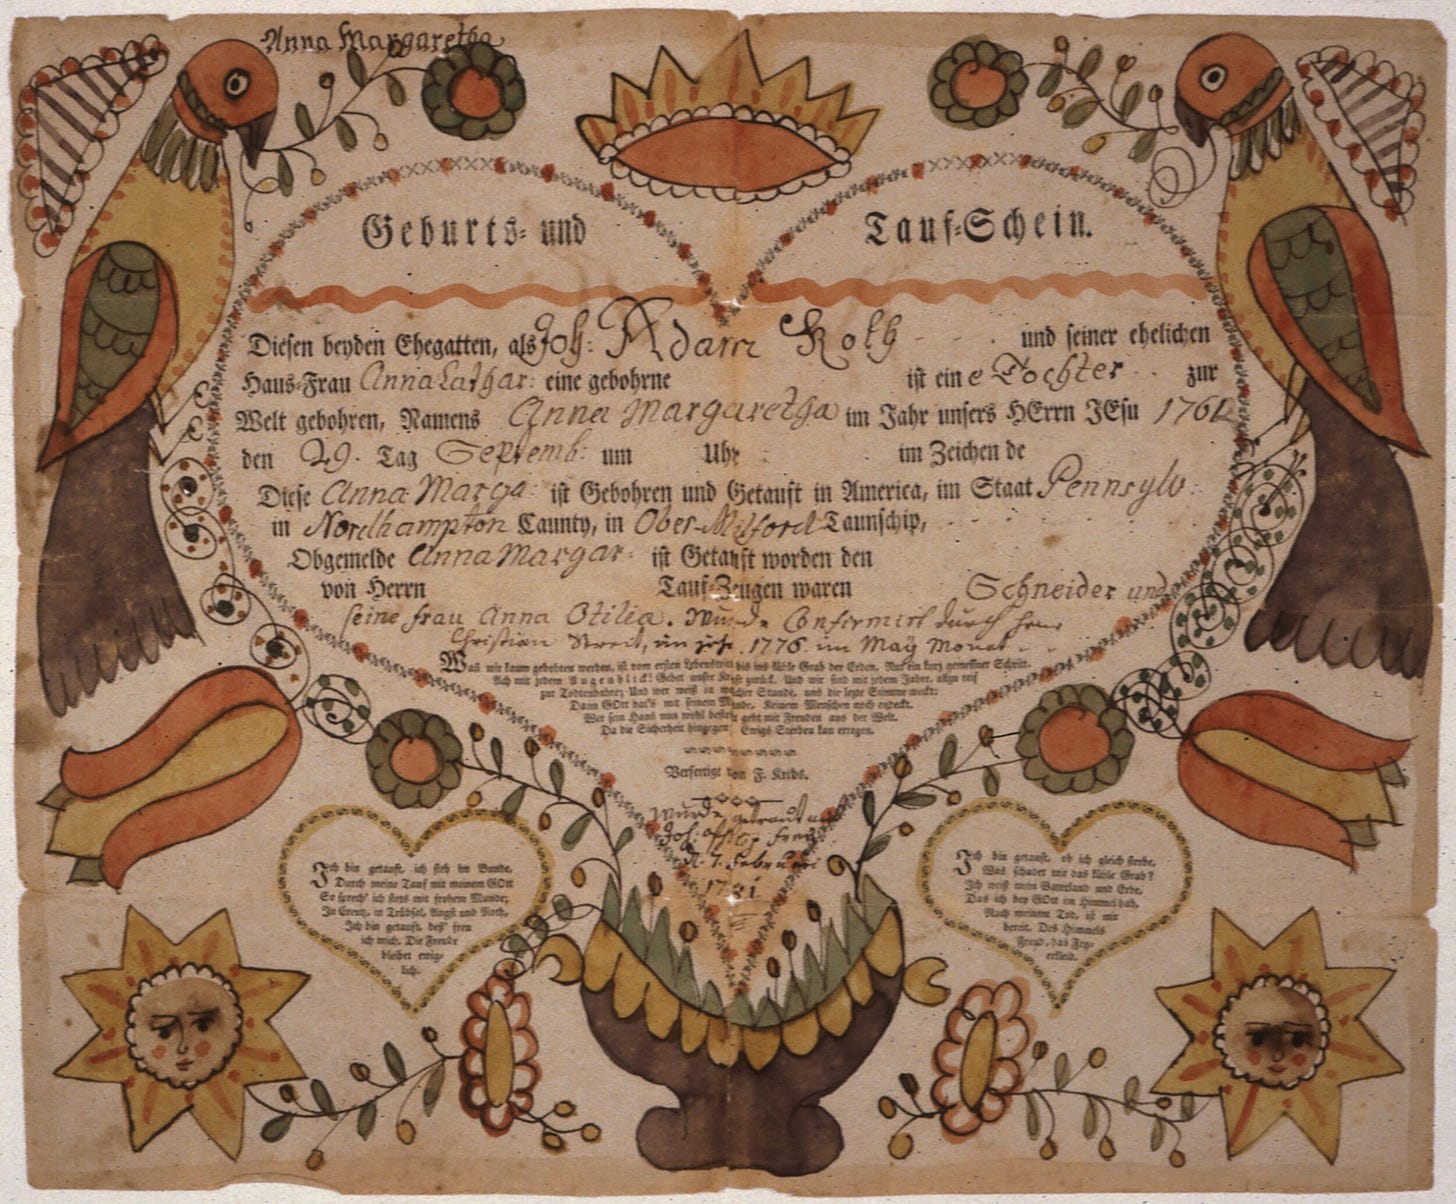 Anna Margaretha
Geburts- und Tauf-Schein.
Diesen beyden Ehegatten, als Joh: Adam Roth und seiner ehelichen
Haus-Frau Anna Cathar: eine gebohrne ist eine Tochter zur
Welt gebohren, Namens Anna Margaretha im Jahr unsers HErrn JEsu 1761
den 29. Tag Septemb: um Uhr im Zeichen de
Diese Anna Marga: ist Gebohren und Getauft in America, im Staat Pennsylv:
in Nordhampton Caunty, in Ober-Milford Taunschip,
Obgemelde Anna Margar: ist Getauft worden den
von Herrn Tauf-Zeugen waren Schneider und
seine frau Anna Otilia. Wurde Confirmirt durch Herr
Christian Streit, im jahr 1776 im May Monat
Was wir kaum gebohren werden, ist vom ersten Lebenstritt bis ins kühle Grab der Erden, Nur ein kurz gemeßner Schritt.
Ach mit jedem Augenblick! Gehet unsre Kraft zurück. Und wir sind mit jedem Jahre, allzu reif
zur Todtenbahre; Und wer weiß in welcher Stunde, uns die lezte Stimme weckt:
Dann GOtt hat's mit seinem Munde, Keinem Menschen noch endeckt.
Wer sein Haus nun wohl bestellt geht mit Freuden aus der Welt.
Da die Sicherheit hingegen Ewigs Sterben kan erregen.
Verfertigt von F. Krebs.
Wurde getraut
Joh:
d. 7. Februari
1781
Ich bin getauft, ich steh im Bunde,
Durch meine Tauf mit meinem GOtt
So sprech' ich stets mit frohem Munde;
In Creutz, in Trübsal, Angst und Noth,
Ich bin getauft, deß' freu
ich mich, Die Freude
bleibet ewig-
lich.
Ich bin getauft, ob ich gleich sterbe,
Was schadet mir das kühle Grab?
Ich weiß mein Vaterland und Erbe,
Das ich bey GOtt im Himmel hab,
Nach meinem Tod, ist mir
bereit, Des Himmels
Freud, das Fey-
erkleid.